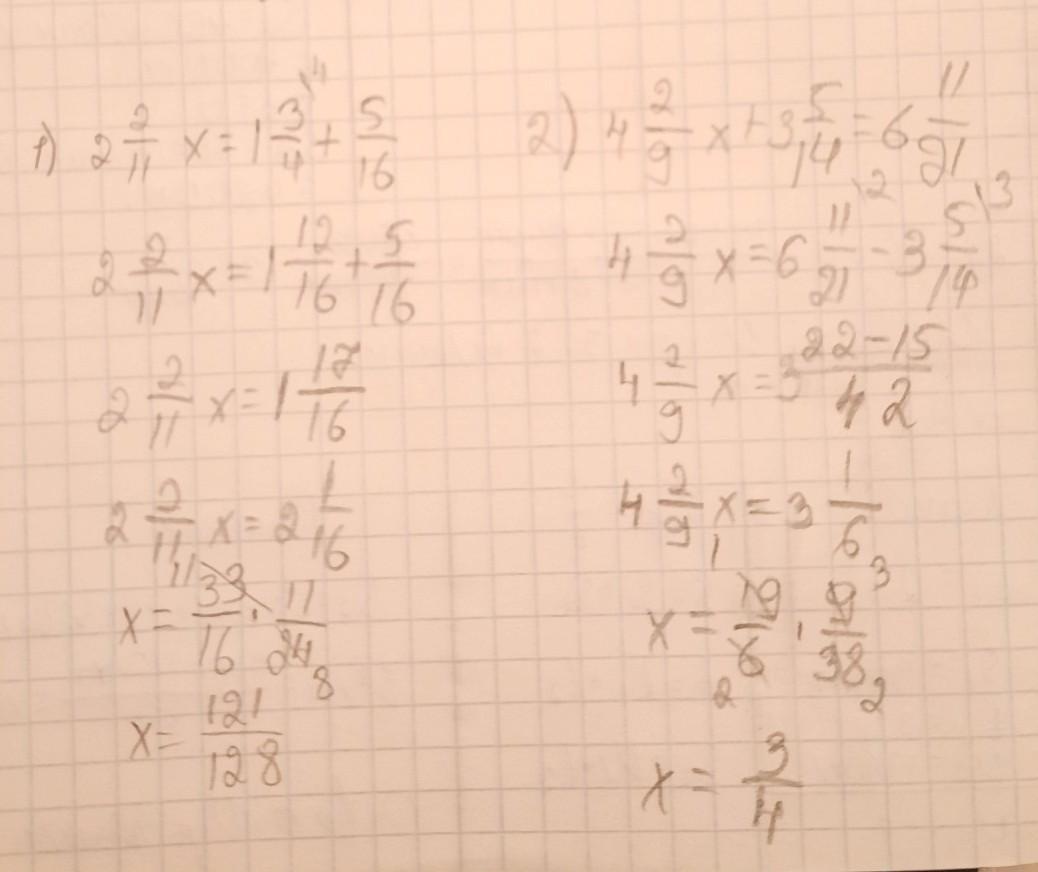 1) 2 2/11 x = 1 3/4 \4 + 5/16
2 2/11 x = 1 12/16 + 5/16
2 2/11 x = 1 17/16
2 2/11 x = 2 1/16
x = 33/16 · 11/24 11 8
x = 121/128
2) 4 2/9 x + 3 5/14 = 6 11/21
4 2/9 x = 6 11/21 \2 - 3 5/14 \3
4 2/9 x = 3 22-15/42
4 2/9 x = 3 1/6
x = 19/6 · 9/38 1 3 2 2
x = 3/4